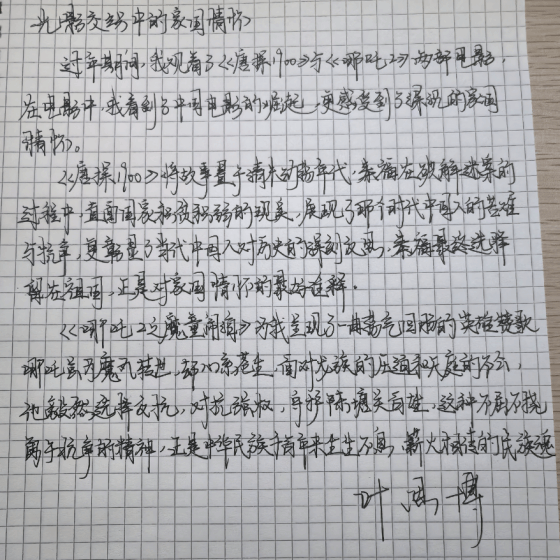 光影交织中的家国情怀
过年期间,我观看了《唐探1900》与《哪吒2》两部电影,
在电影中,我看到了中国电影的崛起,更感受到了深沉的家国
情怀。
《唐探1900》将故事置于清末动荡年代,秦福在破解迷案的
过程中,直面国家积贫积弱的现实,展现了那个时代中国人的苦难
与抗争,更彰显了当代中国人对历史的深刻反思,秦福最终选择
留在祖国,正是对家国情怀的最好诠释。
《哪吒之魔童闹海》为我呈现了一曲荡气回肠的英雄赞歌
哪吒虽为魔丸转世,却心系苍生,面对龙族的压迫和天庭的不公,
他毅然选择反抗,对抗强权,守护陈塘关百姓,这种不屈不挠
勇于抗争的精神,正是中华民族千百年来生生不息,薪火相传的民族魂